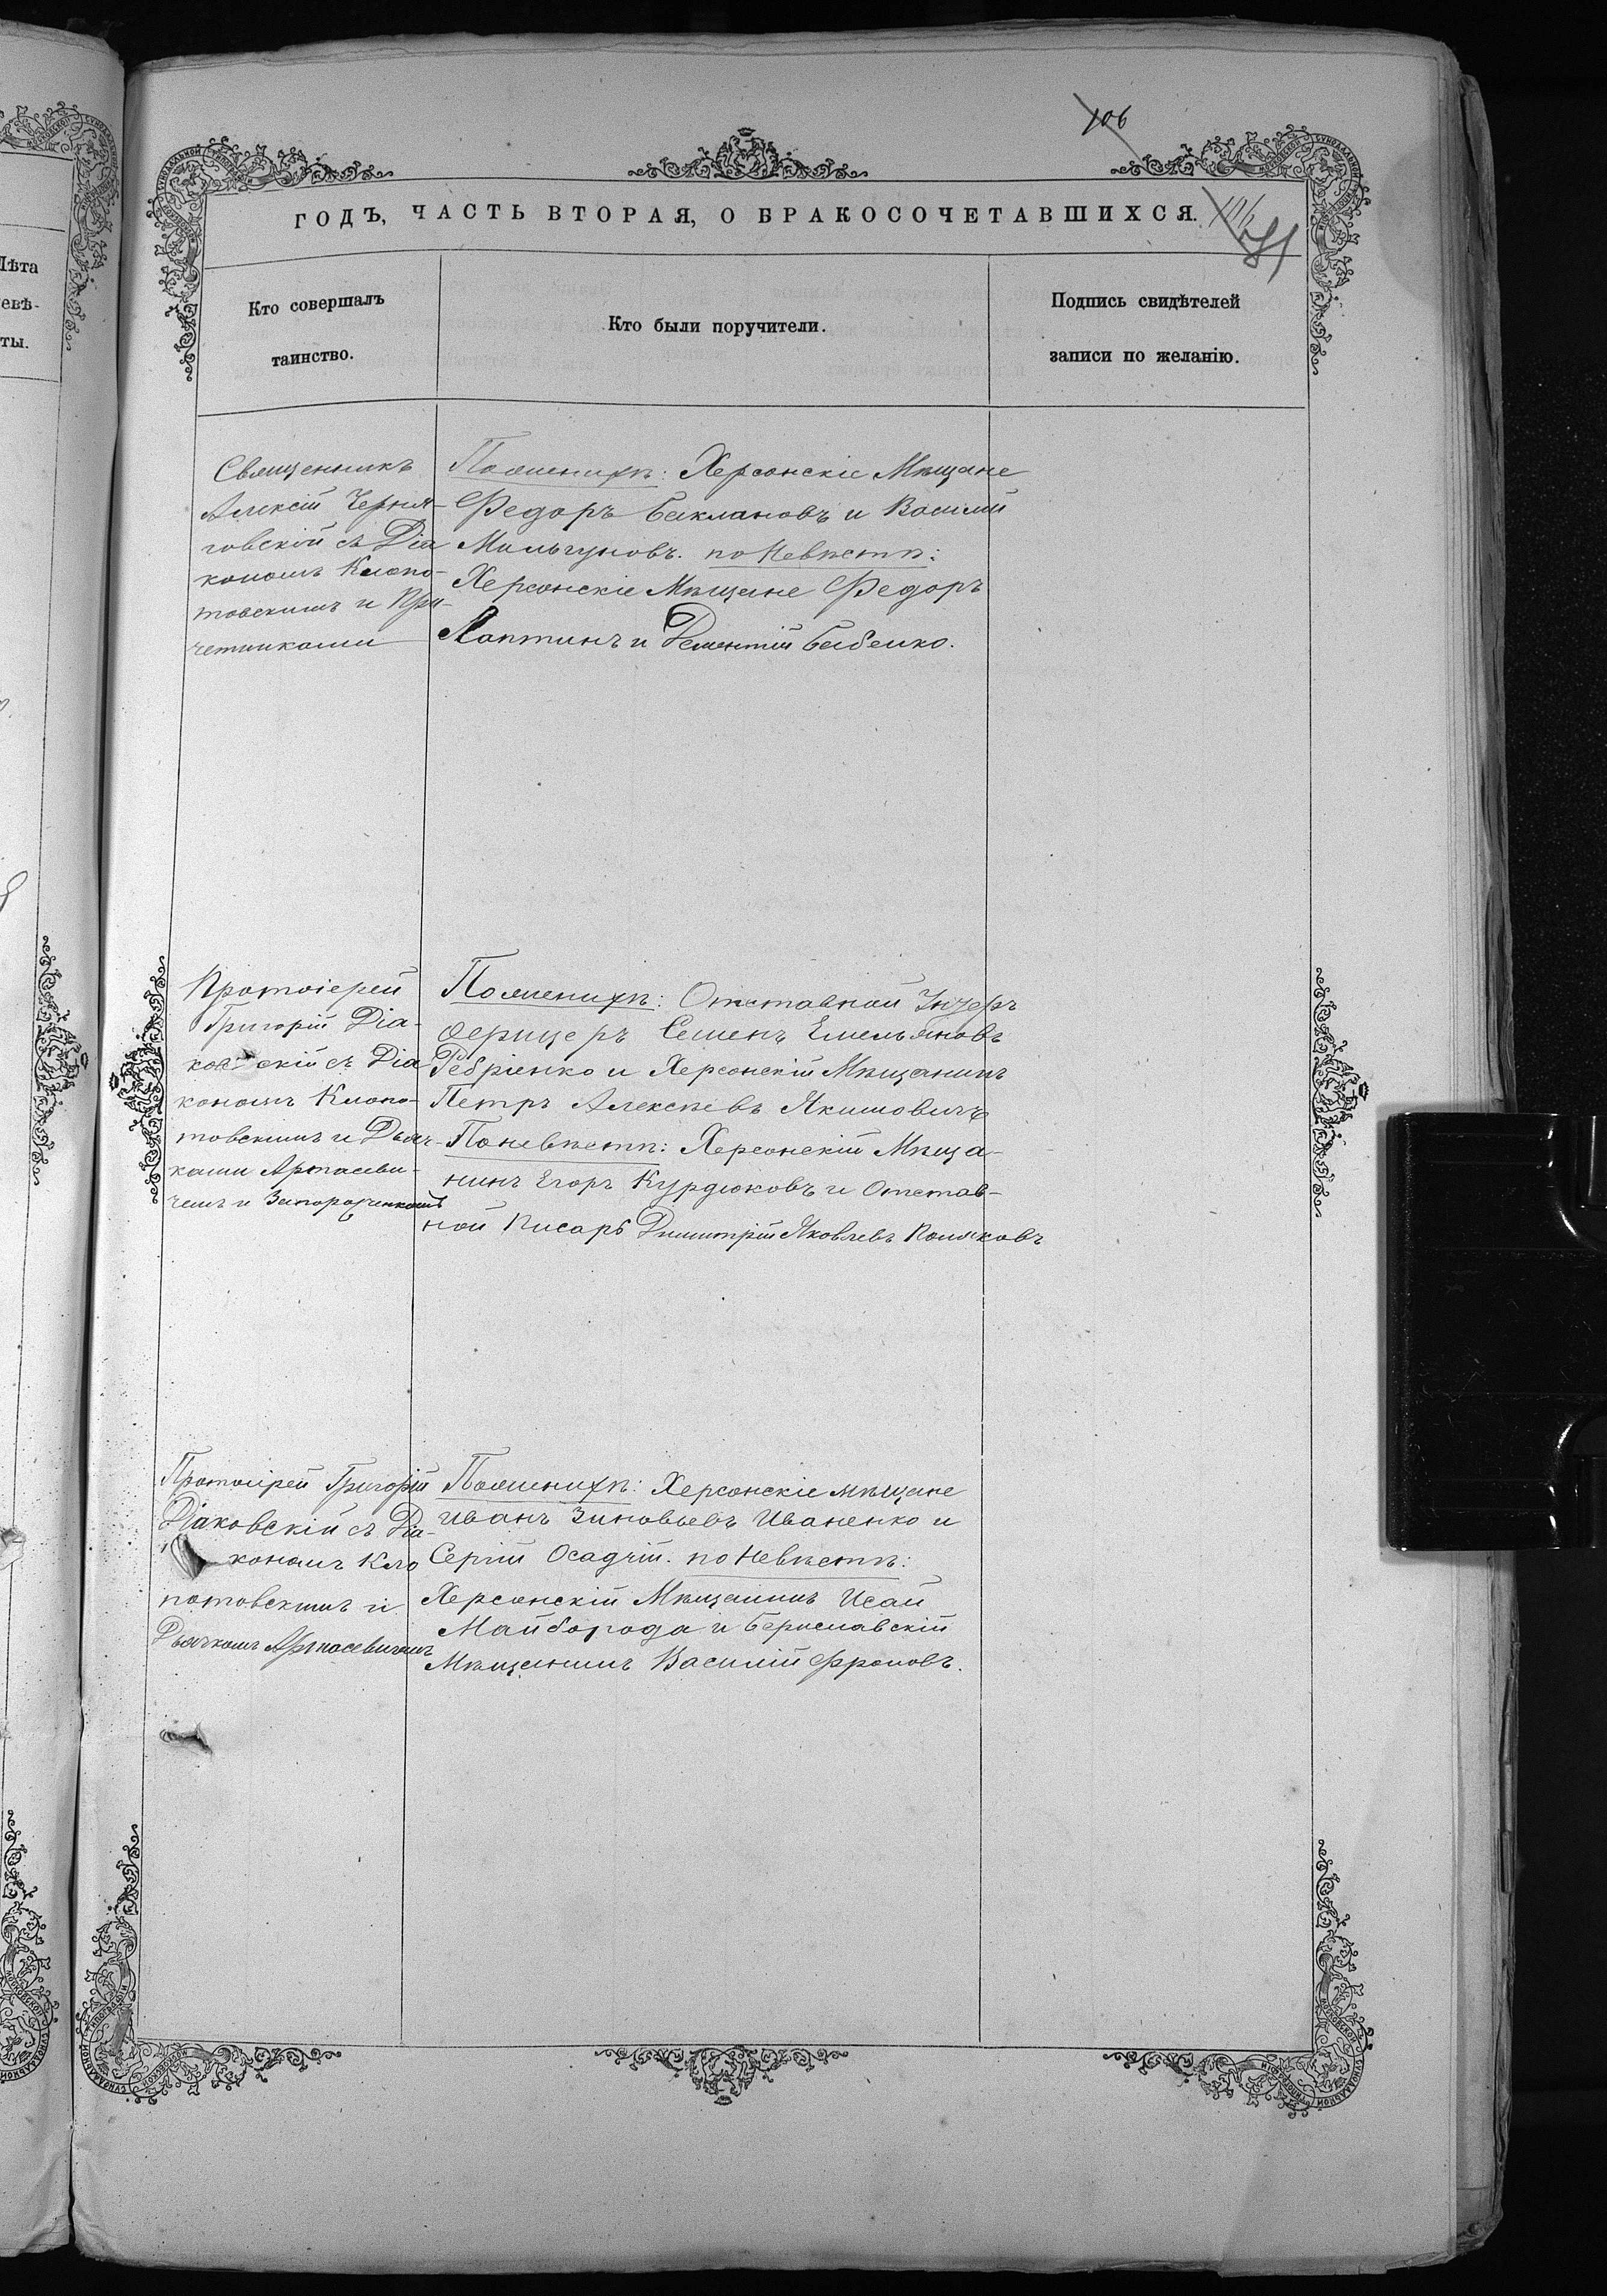 106
ГОДЪ, ЧАСТЬ ВТОРАЯ, О БРАКОСОЧЕТАВШИХСЯ.
Кто совершалъ
таинство.
Кто были поручители.
Подпись свидѣтелей
записи по желанію.
Священникъ
Алексій Черня-
говскій съ Діа
кономъ Клопо-
товскимъ и При-
четниками
По женихѣ: Херсонскіе Мѣщане
Федоръ Баклановъ и Василій
Мильгуновъ. по Невѣстѣ:
Херсонскіе Мѣщане Федоръ
Лаптинъ и Дементій Бабенко.
Протоіерей
Григорій Діа-
ковскій съ Діа
кономъ Клопо-
товскимъ и Дьяч-
ками Артасеви-
чемъ и Запорожченкомъ
По женихѣ: Отставной Унтеръ
Офицеръ Семенъ Емельяновъ
Ребріенко и Херсонскій Мѣщанинъ
Петръ Алексѣевъ Якимовичъ
По невѣстѣ: Херсонскій Мѣща-
нинъ Егоръ Курдюковъ и Отстав-
ной Писарь Димитрій Яковлевъ Поляковъ
Протоіерей Григорій
Діаковскій съ Діа-
кономъ Кло
потовскимъ и
Дьячкомъ Артасевичемъ
По женихѣ: Херсонскіе мѣщане
Иванъ Зиновьевъ Иваненко и
Сергій Осадчій. по Невѣстѣ:
Херсонскій Мѣщанинъ Исай
Майборода и Бериславскій
Мѣщанинъ Василій Фроловъ.
Лѣта
евѣ-
ты.